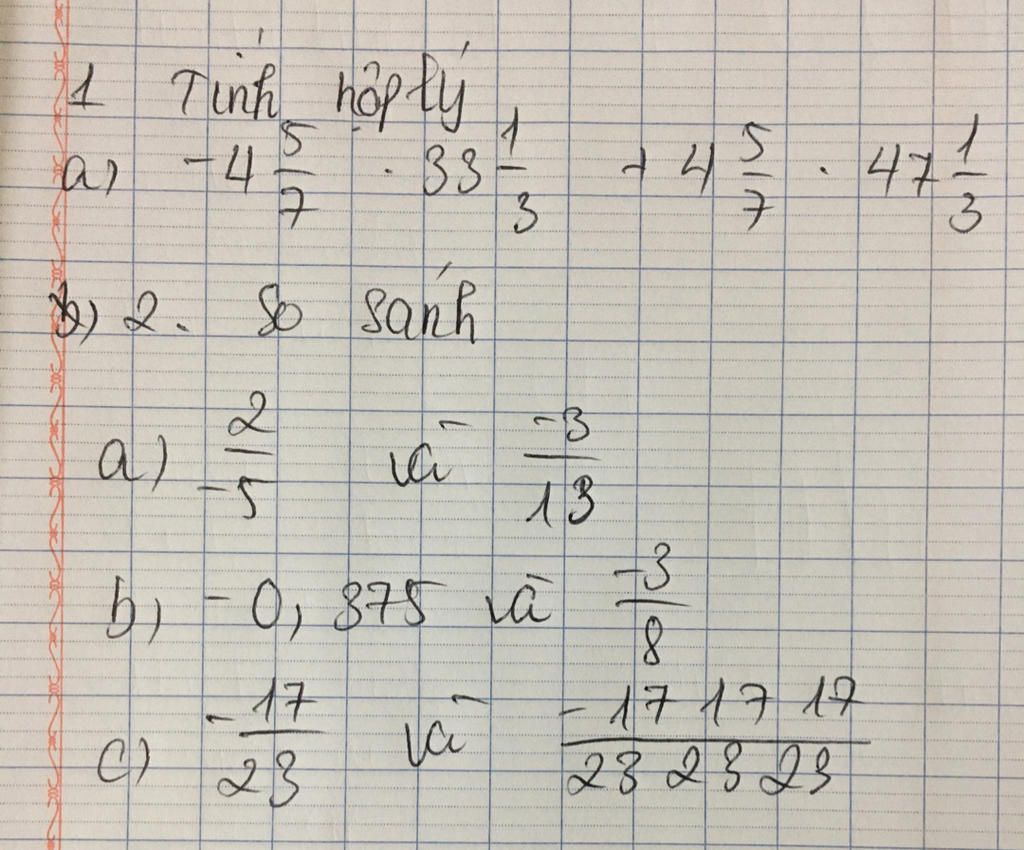 1 Tính hợp lý
a) -4 5/7 . 33 1/3 + 4 5/7 . 47 1/3
2. So sánh
a) 2/-5 và -3/13
b) -0,375 và -3/8
c) -17/23 và -171717/232323